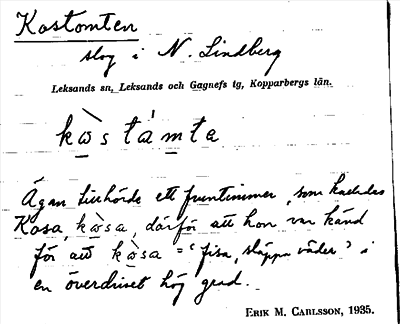 Kostomten
slog i N. Lindberg
Leksands sn, Leksands och Gagnefs tg, Kopparbergs län.
kɷ̀s tám̀ta
Ägan tillhörde ett fruntimmer, som kallades
Kosa, kɷ̀sa, därför att hon var känd
för att kɷ̀sa = 'fisa, släppa väder' i
en överdrivet hög grad.
ERIK M. CARLSSON, 1935.